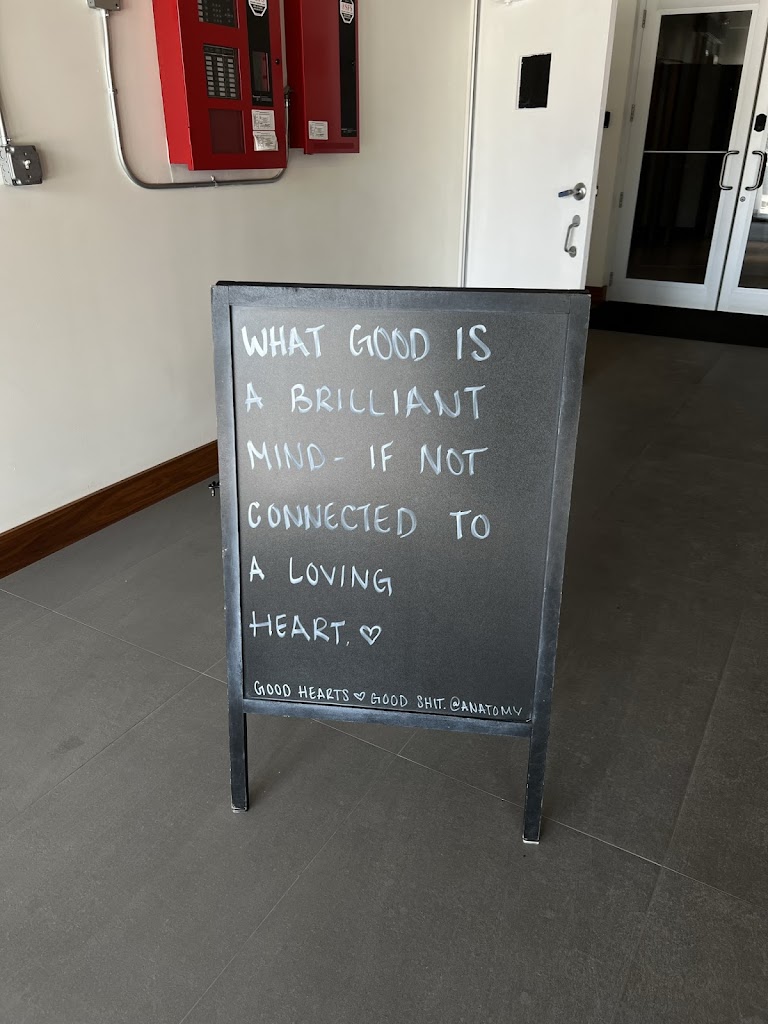 WHAT GOOD IS
A BRILLIANT
MIND- IF NOT
CONNECTED TO
A LOVING
HEART. ♡
GOOD HEARTS ♡ GOOD SHIT. @ANATOMY